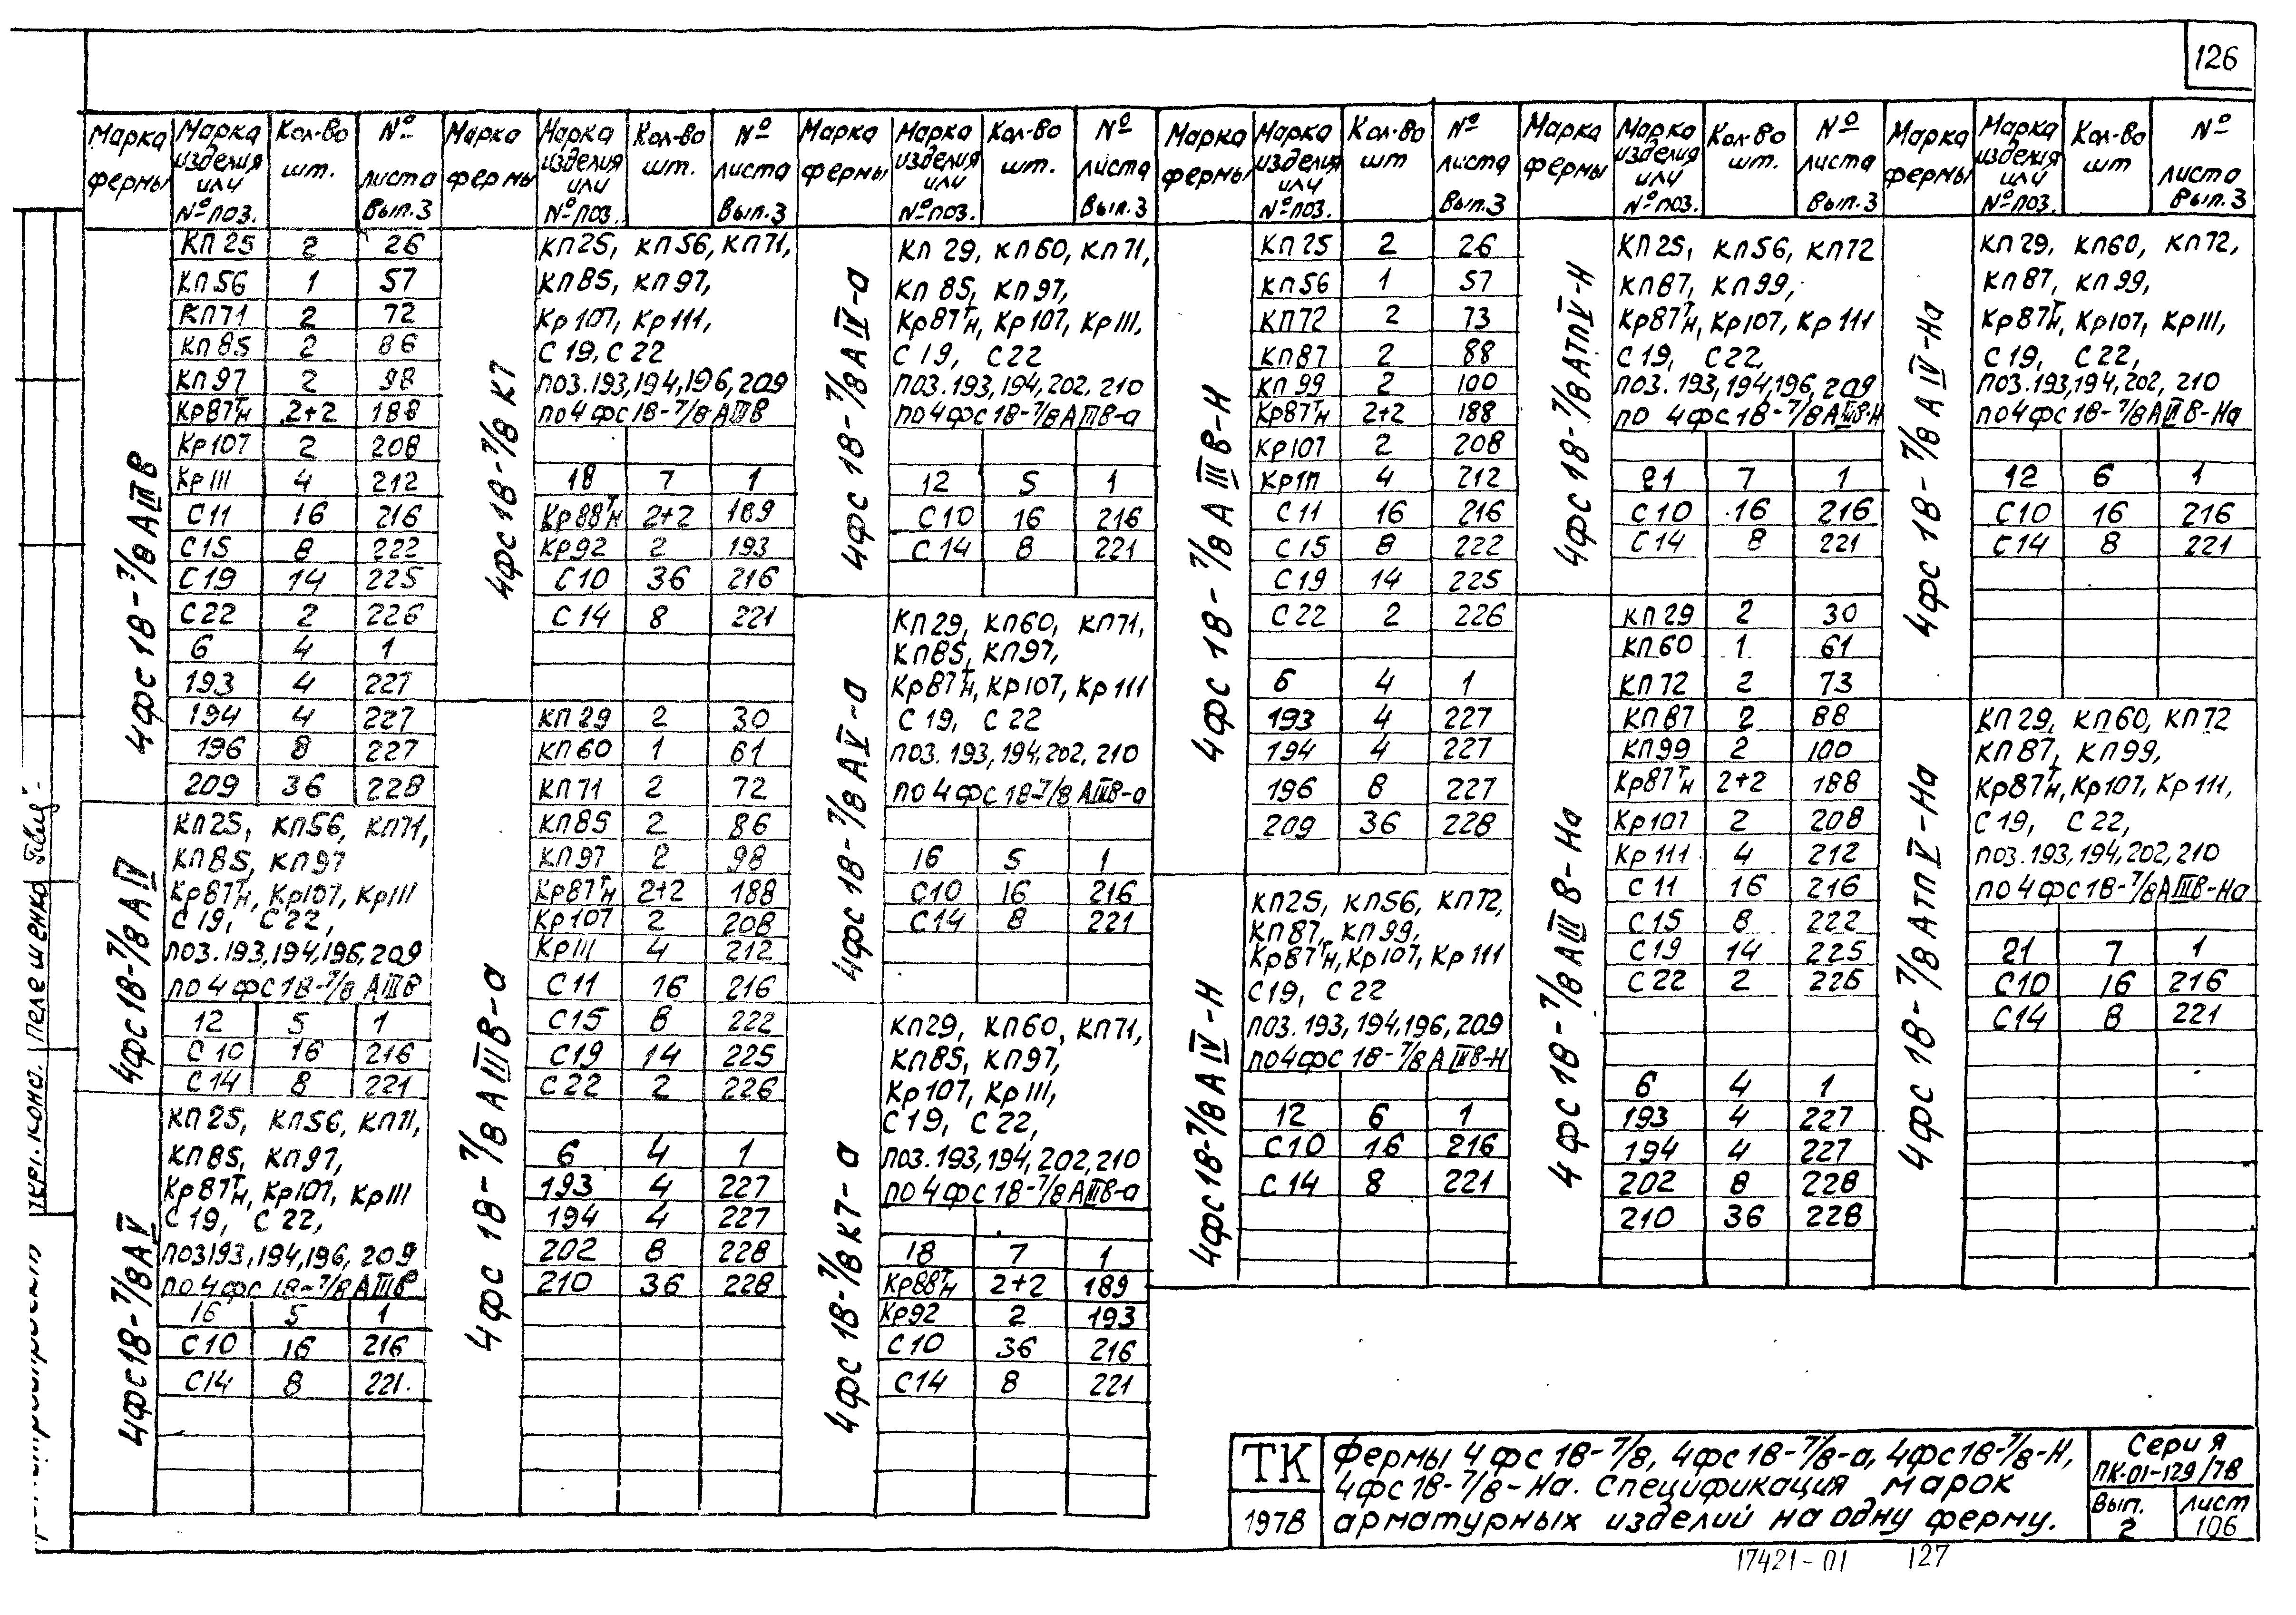 126
Марка фермы | Марка изделия или № поз. | Кол-во шт. | № листа Вып.3
4фс 18-7/8 АIIIВ
КП 25 | 2 | 26
КП 56 | 1 | 57
КП71 | 2 | 72
КП 85 | 2 | 86
КП 97 | 2 | 98
Кр87тн | 2+2 | 188
Кр107 | 2 | 208
Кр111 | 4 | 212
С11 | 16 | 216
С15 | 8 | 222
С19 | 14 | 225
С22 | 2 | 226
6 | 4 | 1
193 | 4 | 227
194 | 4 | 227
196 | 8 | 227
209 | 36 | 228
4фс18-7/8 АIV
КП25, КП56, КП71,
КП85, КП97
Кр87тн, Кр107, Кр111
С19, С22,
поз.193,194,196,209
по 4фс18-7/8 АIIIВ
12 | 5 | 1
С10 | 16 | 216
С14 | 8 | 221
4фс18-7/8АV
КП25, КП56, КП71,
КП85, КП97,
Кр87тн, Кр107, Кр111
С19, С22,
поз193,194,196, 209
по 4фс 18-7/8 АIIIВ
16 | 5 | 1
С10 | 16 | 216
С14 | 8 | 221.
Марка фермы | Марка изделия или № поз. | Кол-во шт. | № листа Вып.3
4фс18-7/8 КТ
КП25, КП56, КП71,
КП85, КП97,
Кр107, Кр111,
С19, С22
поз.193,194,196,209
по4фс18-7/8 АIIIВ
18 | 7 | 1
Кр88тн | 2+2 | 189
Кр92 | 2 | 193
С10 | 36 | 216
С14 | 8 | 221
4фс 18-7/8 АIIIВ-а
КП29 | 2 | 30
КП60 | 1 | 61
КП71 | 2 | 72
КП85 | 2 | 86
КП97 | 2 | 98
Кр87тн | 2+2 | 188
Кр107 | 2 | 208
Кр111 | 4 | 212
С11 | 16 | 216
С15 | 8 | 222
С19 | 14 | 225
С22 | 2 | 226
6 | 4 | 1
193 | 4 | 227
194 | 4 | 227
202 | 8 | 228
210 | 36 | 228
Марка фермы | Марка изделия или № поз. | Кол-во шт. | № листа Вып.3
4фс 18-7/8 АIV-а
КП 29, КП60, КП71,
КП 85, КП97,
Кр87тн, Кр107, Кр111,
С19, С22
поз.193,194,202,210
по4фс18-7/8АIIIВ-а
12 | 5 | 1
С10 | 16 | 216
С14 | 8 | 221
4фс 18-7/8 АV-а
КП29, КП60, КП71,
КП85, КП97,
Кр87тн, Кр107, Кр111
С19, С22
поз.193,194,202,210
по4фс18-7/8 АIIIВ-а
16 | 5 | 1
С10 | 16 | 216
С14 | 8 | 221
4фс 18-7/8 КТ-а
КП29, КП60, КП71,
КП85, КП97,
Кр107, Кр111,
С19, С22,
поз.193,194,202,210
по4фс18-7/8АIIIВ-а
18 | 7 | 1
Кр88тн | 2+2 | 189
Кр92 | 2 | 193
С10 | 36 | 216
С14 | 8 | 221
Марка фермы | Марка изделия или № поз. | Кол-во шт | № листа Вып.3
4фс 18-7/8 АIIIВ-Н
КП25 | 2 | 26
КП56 | 1 | 57
КП72 | 2 | 73
КП87 | 2 | 88
КП99 | 2 | 100
Кр87тн | 2+2 | 188
Кр107 | 2 | 208
Кр111 | 4 | 212
С11 | 16 | 216
С15 | 8 | 222
С19 | 14 | 225
С22 | 2 | 226
6 | 4 | 1
193 | 4 | 227
194 | 4 | 227
196 | 8 | 227
209 | 36 | 228
4фс18-7/8АIV-Н
КП25, КП56, КП72,
КП87, КП99,
Кр87тн, Кр107, Кр111
С19, С22
поз.193,194,196,209
по4фс18-7/8 АIIIВ-Н
12 | 6 | 1
С10 | 16 | 216
С14 | 8 | 221
Марка фермы | Марка изделия или № поз. | Кол-во шт. | № листа Вып.3
4фс18-7/8АтпV-Н
КП25, КП56, КП72
КП87, КП99,
Кр87тн, Кр107, Кр111
С19, С22,
поз.193,194,196,209
по 4фс18-7/8АIIIВ-Н
21 | 7 | 1
С10 | 16 | 216
С14 | 8 | 221
4фс 18-7/8 АIIIВ-На
КП29 | 2 | 30
КП60 | 1 | 61
КП72 | 2 | 73
КП87 | 2 | 88
КП99 | 2 | 100
Кр87тн | 2+2 | 188
Кр107 | 2 | 208
Кр111 | 4 | 212
С11 | 16 | 216
С15 | 8 | 222
С19 | 14 | 225
С22 | 2 | 226
6 | 4 | 1
193 | 4 | 227
194 | 4 | 227
202 | 8 | 228
210 | 36 | 228
Марка фермы | Марка изделия или № поз. | Кол-во шт | № листа Вып.3
4фс 18-7/8 АIV-На
КП29, КП60, КП72,
КП87, КП99,
Кр87тн, Кр107, Кр111,
С19, С22,
поз.193,194,202,210
по4фс18-7/8АIIIВ-На
12 | 6 | 1
С10 | 16 | 216
С14 | 8 | 221
4фс 18-7/8 АтпV-На
КП29, КП60, КП72
КП87, КП99,
Кр87тн, Кр107, Кр111,
С19, С22,
поз.193,194,202,210
по4фс18-7/8АIIIВ-На
21 | 7 | 1
С10 | 16 | 216
С14 | 8 | 221
конст. Пелешенко
ТК
1978
Фермы 4фс18-7/8, 4фс18-7/8-а, 4фс18-7/8-Н,
4фс18-7/8-На. Спецификация марок
арматурных изделий на одну ферму.
Серия
ПК-01-129/78
Вып. 2
Лист 106
17421-01 127